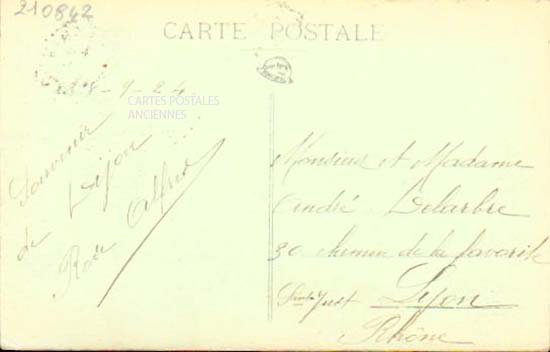 210842
CARTE POSTALE
28-9-24
CARTES POSTALES
ANCIENNES
Souvenir
de Dijon
Alfred
Monsieur et Madame
André Delarbre
30 chemin de la favorite
Saint Just Lyon
Rhône